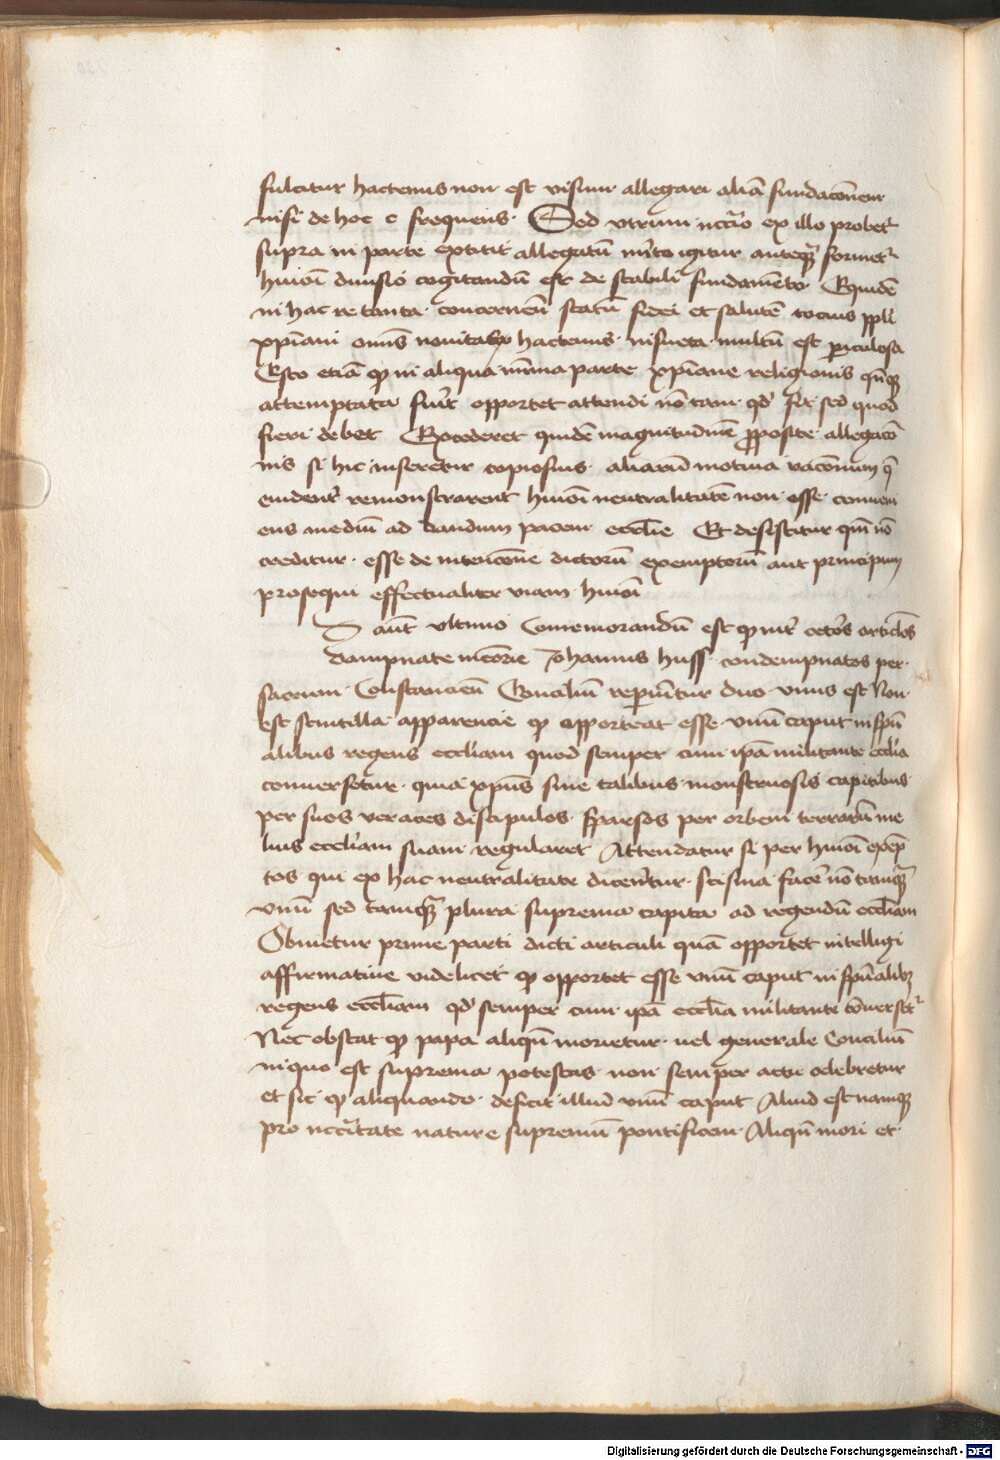 fulcitur hactenus non est visum allegari aliā fundacōnem
nisi de hoc c frequens. Sed vtrum nccīo ex illo probet᷑
supra in parte extitit allegatū mīto igitur anteqᷓ formet᷑
huiōi diuisio cogitandū est de stabili fundamēto. Equidē
in hac re tanta concernen̄ statū fidei et salutē tocius ppl̄i
xp̄iani omīs nouitas hactenus insueta multū est piculosa
Esto etiā qꝫ in aliqua mīma parte xp̄iane religionis
attemptata fuīt opportet attendi nō tam qđ fit sed quod
fieri debet Excederet quidē magnitudinē pposite allegacō
nis si hic insererētur copiosius aliarū motiua racōnum q̄
euident᷑ remonstrarent huiōi neutralitatē non esse conueni
ens mediū ad dandum pacem eccl̄ie Et desistitur qm̄ nō
creditur esse de intencōne dictorū exemptorū aut principum
prosequi effectualiter viam huiōi
aūt vltimo Comemorandū est qꝫ int᷑ cetōs articl̄os
dampnate mēorie Johannis huss condempnatos per
sacrum Constancien̄ Concilium reperiūtur duo vnus est Non
est scintilla apparencie qꝫ opporteat esse vnū caput in sp̄u
alibus regens eccl̄iam quod semper cum ip̄a militante eccl̄ia
conuersetur quia xp̄us sine talibus monstruosis capitibus
per suos veraces discipulos sparsos per orbem terrarū me
lius eccl̄iam suam regularet Attendatur si per huiōi excep
tos qui ex hac neutralitate dicerētur scisma facē nō tamqᷓ
vnū sed tamqᷓ plura suprema capita ad regendū eccl̄iam
Obuietur prime parti dicti articuli quā opportet intelligi
affirmatiue videlicet qꝫ opportet esse vnū caput in sp̄ualibꝫ
regens eccl̄iam qđ semper cum ip̄a eccl̄ia militante cōuerset᷑
Nec obstat qꝫ papa aliqn̄ morietur uel generale Conciliū
in quo est suprema potestas non semper actu celebretur
et sic qꝫ aliquando deficit illud vnū caput Aliud est namqꝫ
pro nccītate nature supremū pontificem Aliqn̄ mori et